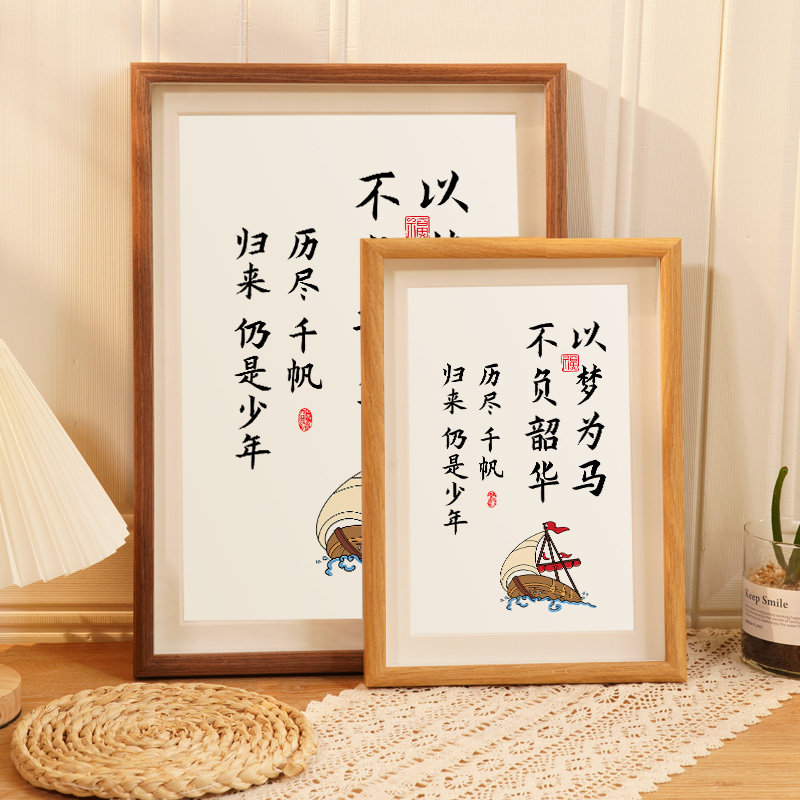 以梦为马
不负韶华
历尽千帆
归来 仍是少年
以
不
历尽千帆
归来 仍是少年
福
福
Keep Smile